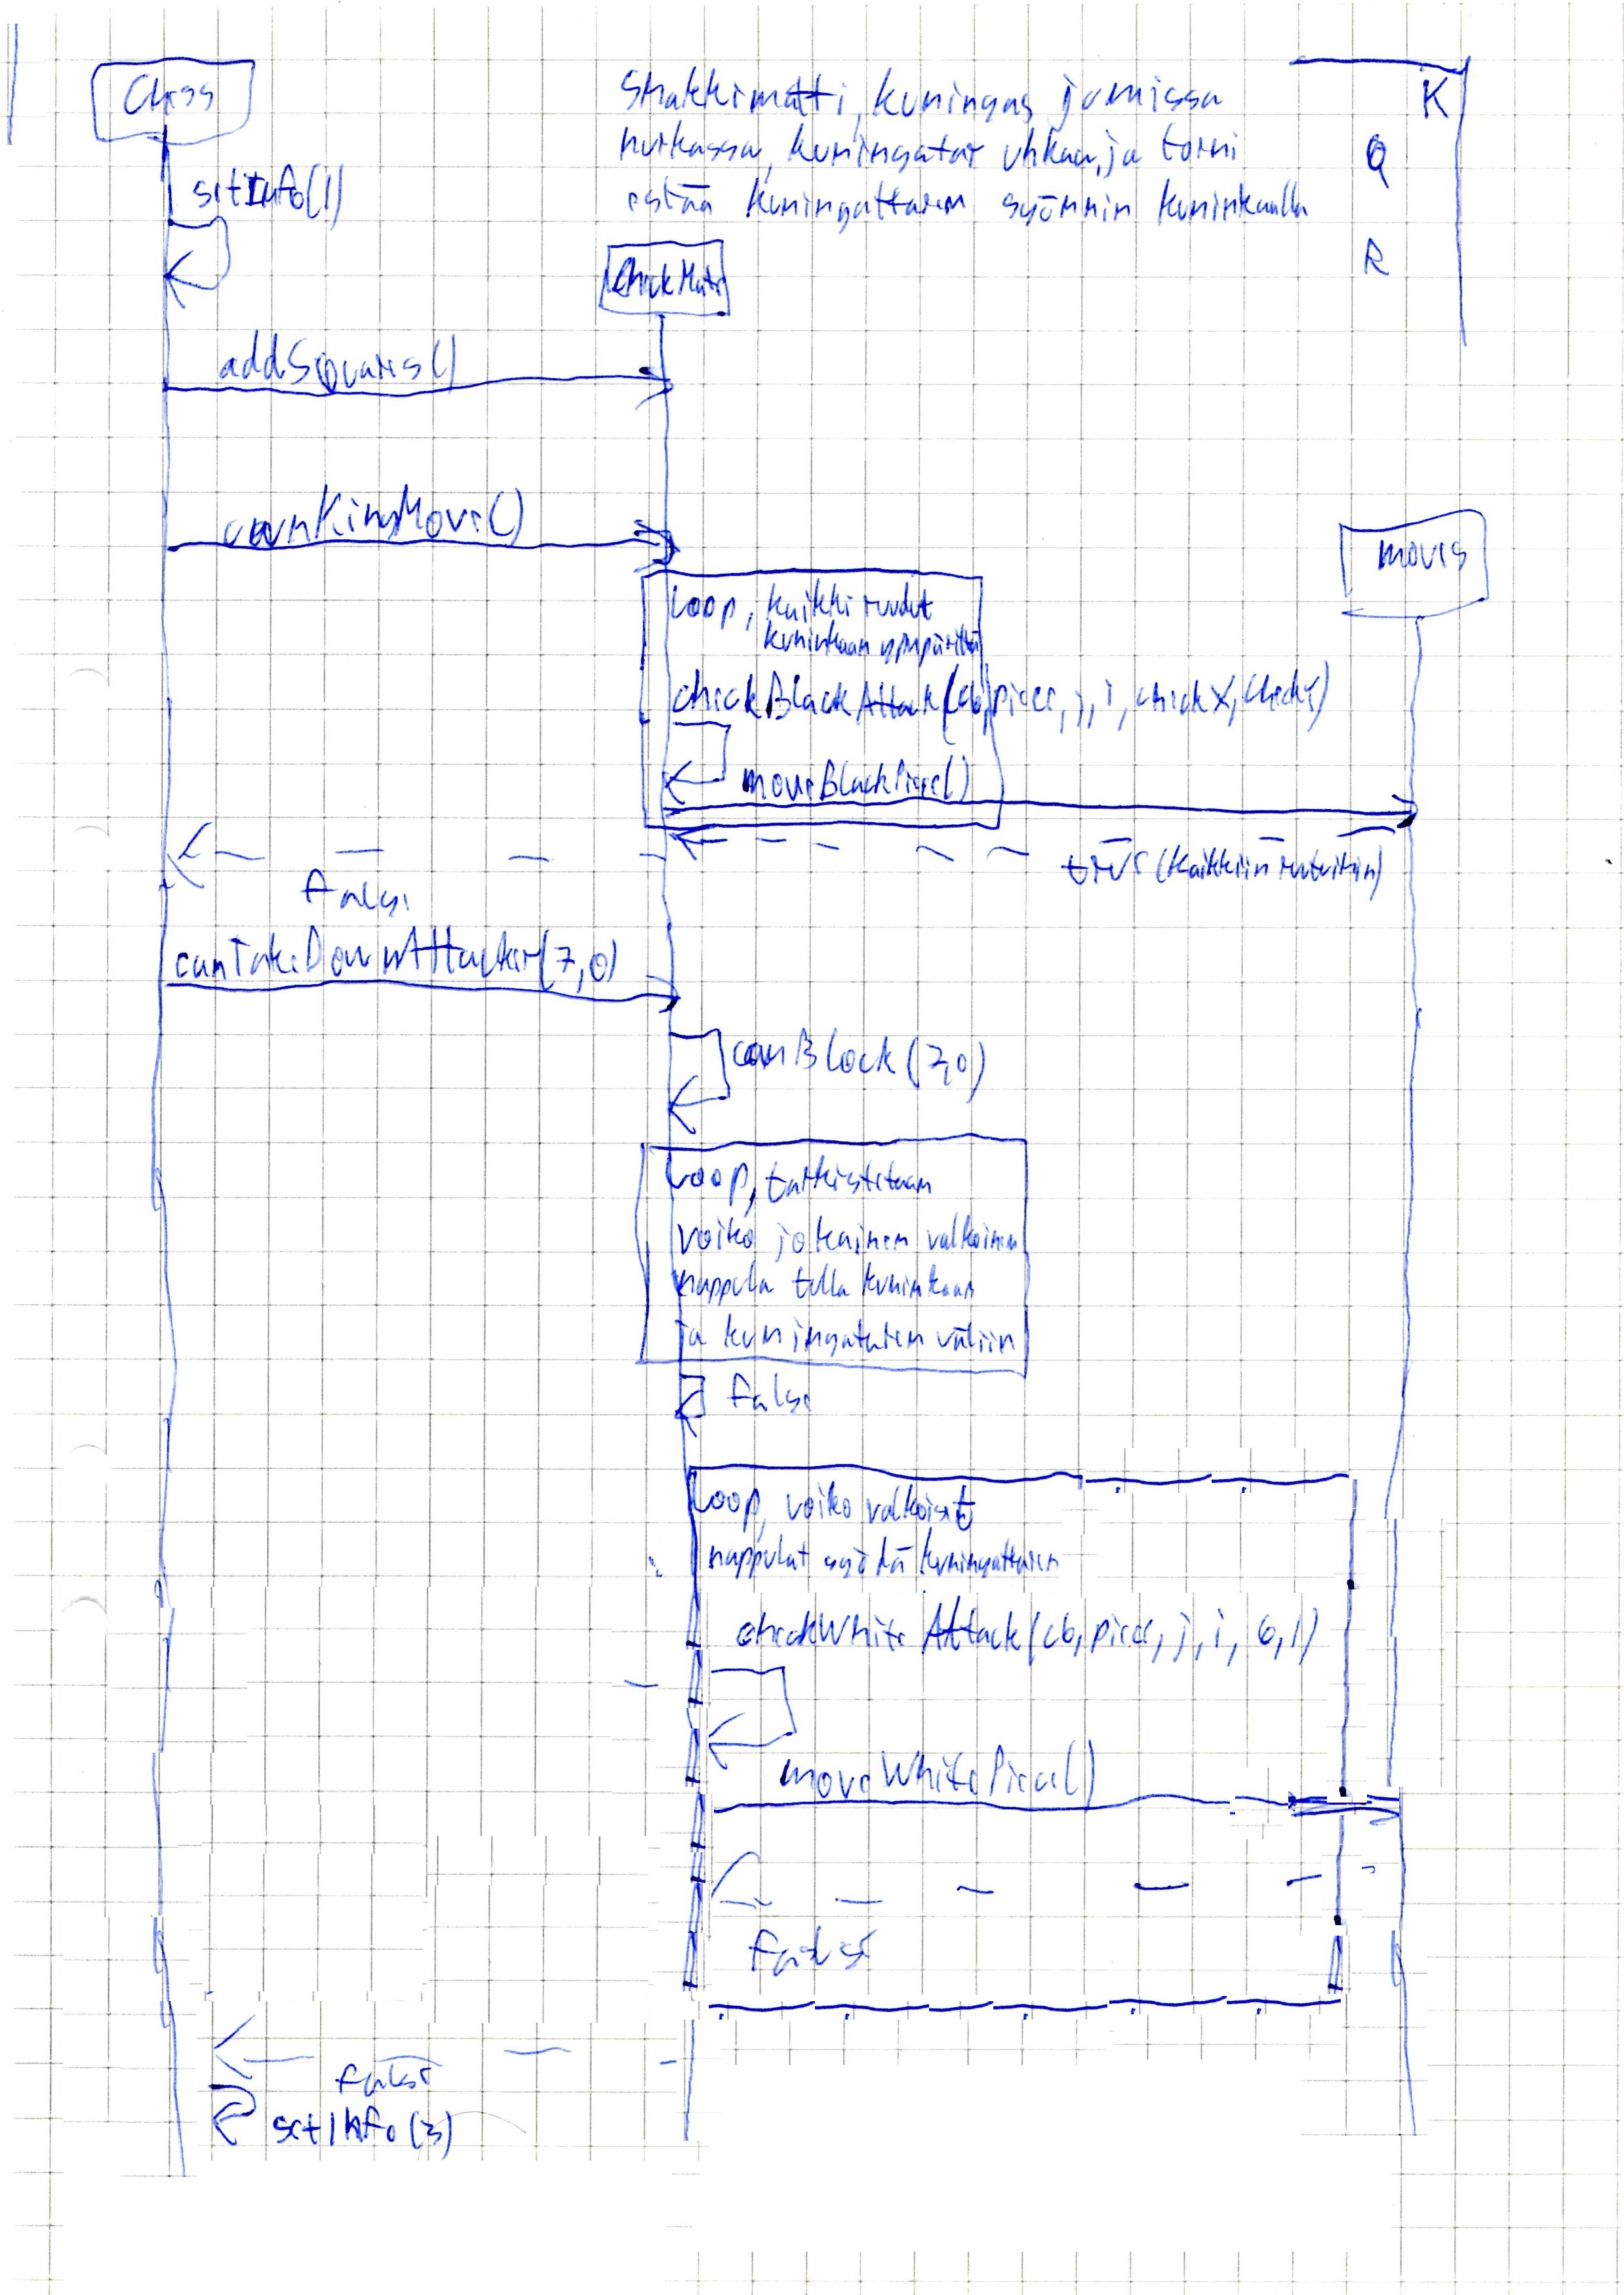 Chess
Shakkimatti, kuningas jumissa
nurkassa, kuningatar uhkaa, ja torni
estää kuningattaren syönnin kuninkaalla
K
Q
R
setInfo(1)
CheckMate
addSquares()
ownKingMove()
moves
loop, kaikki ruudut
kuninkaan ympäriltä
checkBlackAttack(cb, piece, j, i, checkX, checkY)
moveBlackPiece()
true (kaikkiin ruutuihin)
false
canTakeDownAttacker(7,0)
canBlock(7,0)
loop, tarkistetaan
voiko jokainen valkoinen
nappula tulla kuninkaan
ja kuningattaren väliin
false
loop, voiko valkoiset
nappulat syödä kuningattaren
checkWhiteAttack(cb, piece, j, i, 6, 1)
moveWhitePiece()
false
false
setInfo(3)